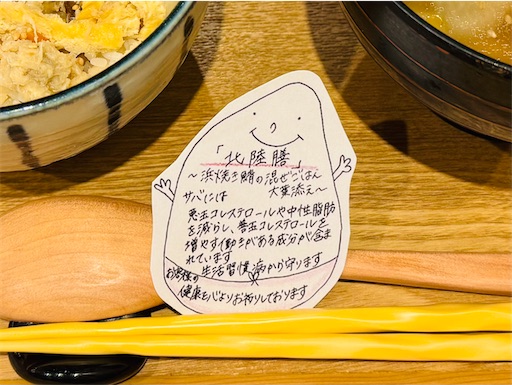 「北陸膳」
～浜焼き鯖の混ぜごはん
大葉添え～
サバには
悪玉コレステロールや中性脂肪
を減らし、善玉コレステロールを
増やす働きがある成分が含ま
れています
生活習慣病から守ります
お客様の
健康を心よりお祈りしております